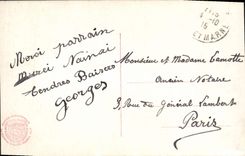 Merci parrain
Merci Nainai
Tendres Baisers
Georges
15
ET MARNE
Monsieur et Madame Lamotte
Ancien Notaire
3, Rue du Général Lambert
Paris